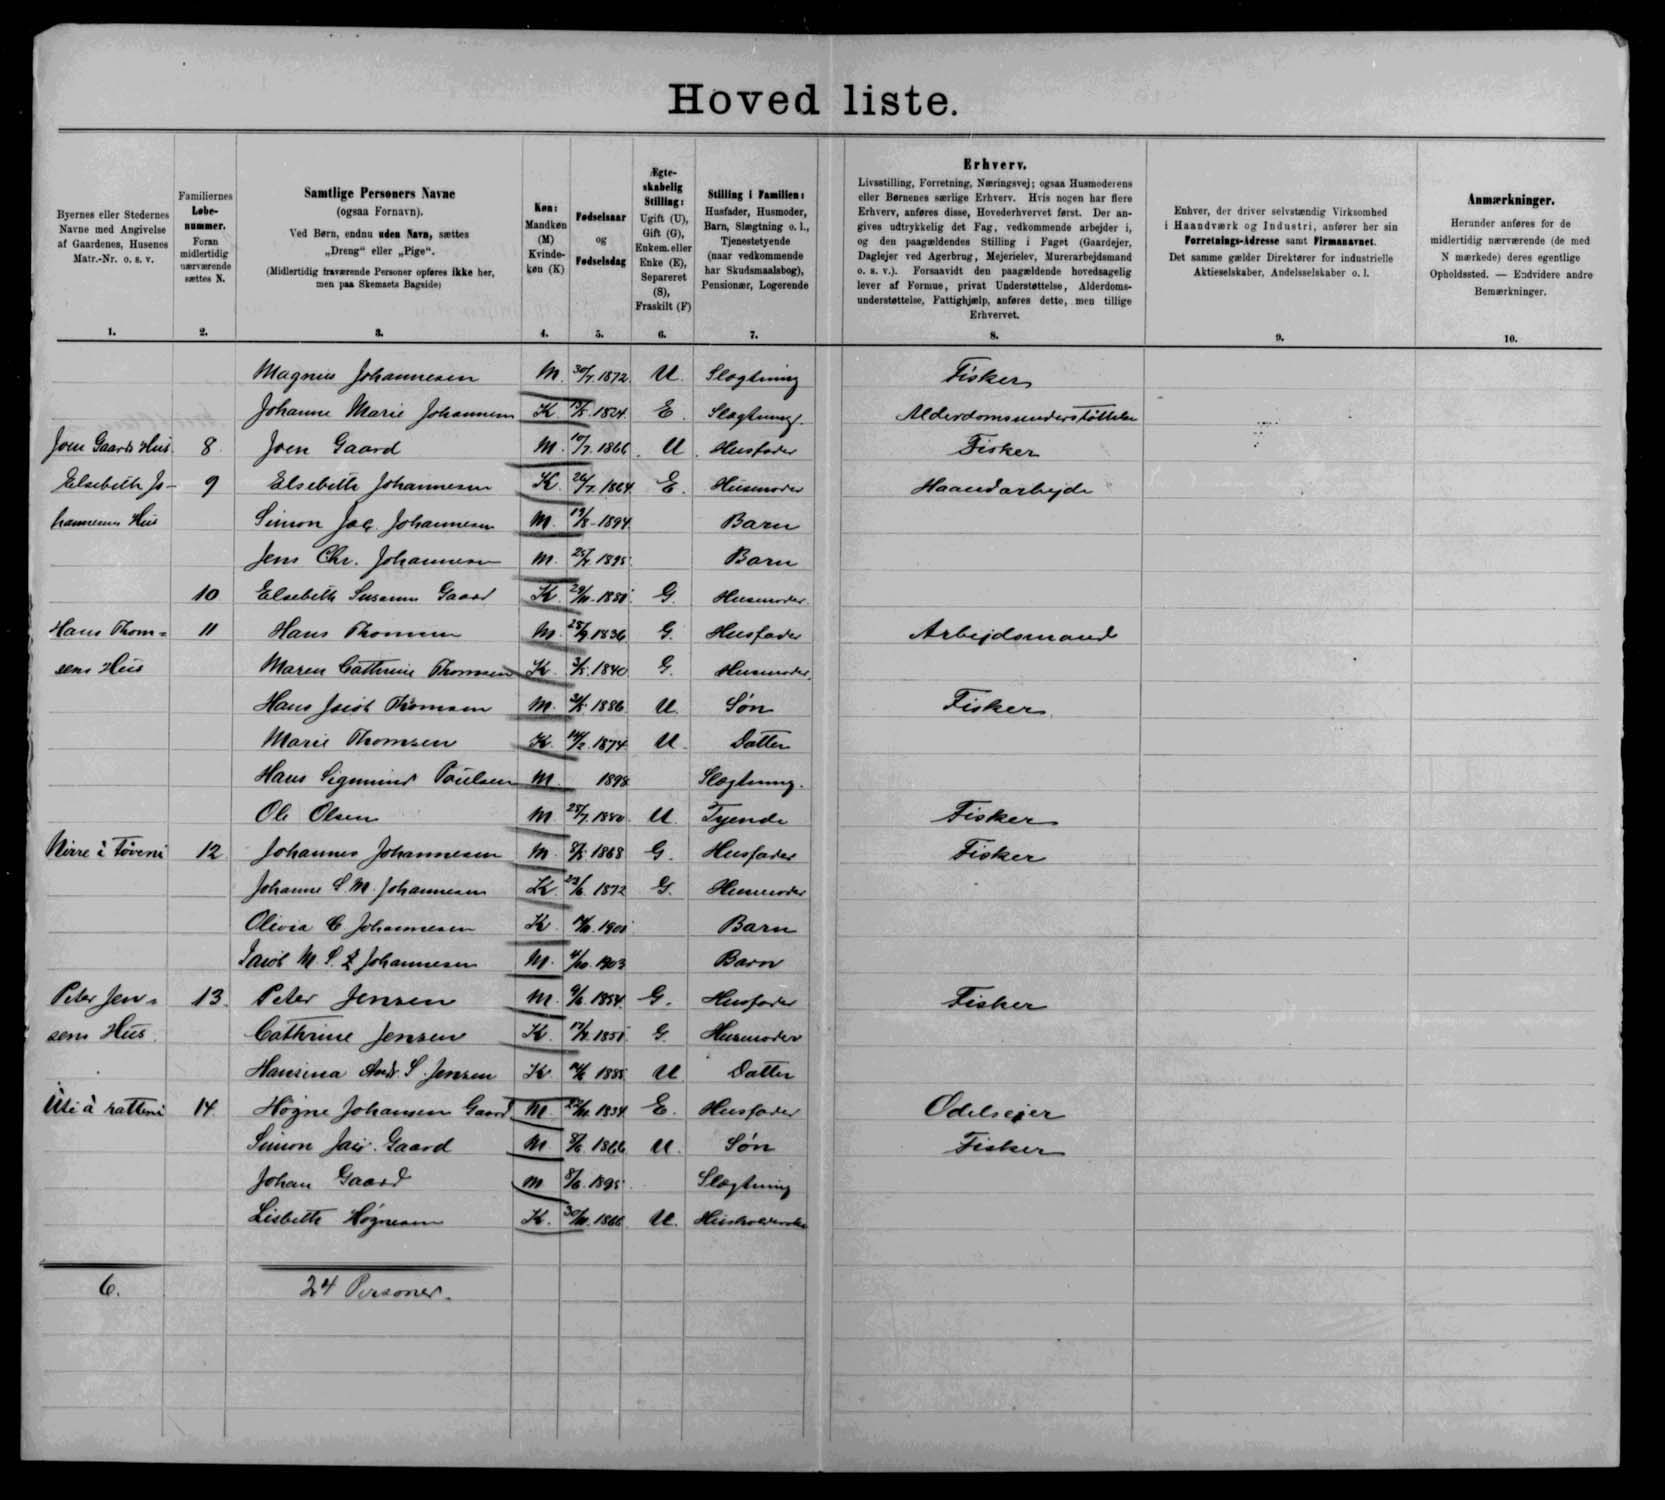 Hoved liste.
Byernes eller Stedernes
Navne med Angivelse
af Gaardenes, Husenes
Matr.-Nr. o. s. v.
1.
Familiernes
Løbe-
nummer.
Foran
midlertidig
nærværende
sættes N.
2.
Samtlige Personers Navne
(ogsaa Fornavn).
Ved Børn, endnu uden Navn, sættes
„Dreng“ eller „Pige“.
(Midlertidig fraværende Personer opføres ikke her,
men paa Skemaets Bagside)
3.
Køn:
Mandkøn
(M)
Kvinde-
køn (K)
4.
Fødselsaar
og
Fødselsdag
5.
Ægte-
skabelig
Stilling:
Ugift (U),
Gift (G),
Enkem. eller
Enke (E),
Separeret
(S),
Fraskilt (F)
6.
Stilling i Familien:
Husfader, Husmoder,
Barn, Slægtning o. l.,
Tjenestetyende
(naar vedkommende
har Skudsmaalsbog),
Pensionær, Logerende
7.
Erhverv.
Livsstilling, Forretning, Næringsvej; ogsaa Husmoderens
eller Børnenes særlige Erhverv. Hvis nogen har flere
Erhverv, anføres disse, Hovederhvervet først. Der an-
gives udtrykkelig det Fag, vedkommende arbejder i,
og den paagældendes Stilling i Faget (Gaardejer,
Daglejer ved Agerbrug, Mejerielev, Murerarbejdsmand
o. s. v.). Forsaavidt den paagældende hovedsagelig
lever af Formue, privat Understøttelse, Alderdoms-
understøttelse, Fattighjælp, anføres dette, men tillige
Erhvervet.
8.
Enhver, der driver selvstændig Virksomhed
i Haandværk og Industri, anfører her sin
Forretnings-Adresse samt Firmanavnet.
Det samme gælder Direktører for industrielle
Aktieselskaber, Andelsselskaber o. l.
9.
Anmærkninger.
Herunder anføres for de
midlertidig nærværende (de med
N mærkede) deres egentlige
Opholdssted. — Endvidere andre
Bemærkninger.
10.
Magnus Johannesen M. 30/7. 1872. U. Slægtning Fisker
Johanne Marie Johannesen K 1824. E. Slægtning. Alderdomsunderstøttelse
Joen Gaards Hus. 8 Joen Gaard M. 10/7. 1866 U. Husfader Fisker
Elsebeth Jo- 9 Elsebeth Johannesen K. 26/7. 1864 E. Husmoder Haandarbejde
hannesens Hus Simon Jac. Johannesen M. 19/8 - 1894 Barn
Jens Chr. Johannesen M. 1895. Barn
10 Elsebeth Susanne Gaard K. G. Husmoder.
Hans Thom= 11 Hans Thomsen M. 28/9 1836 G. Husfader Arbejdsmand
sens Hus Maren Cathrine Thomsen K. 3/5. 1840 G. Husmoder.
Hans Jacob Thomsen M. 1886 U. Søn Fisker
Marie Thomsen K. 14/2. 1874. U. Datter
Hans Sigmund Poulsen M. 1898 Slægtning.
Ole Olsen M 25/7. 1880. U. Tyende Fisker
Nirre i Tøveni 12 Johannes Johannesen M. 8/5. 1868 G. Husfader Fisker
Johanne S. M. Johannesen K. 23/6. 1872 G. Husmoder
Olivia C Johannesen K. Barn
Jacob M. P. Z Johannesen M. 1903 Barn
Peter Jen= 13. Peter Jensen M. 9/6. 1854. G. Husfader Fisker
sens Hus. Cathrine Jensen K. 1851 G. Husmoder
Hansina Andr. S. Jensen K. U. Datter
Uti å rattene 14. Høgne Johansen Gaard M. 1834. E. Husfader Odelsejer
Simon Jac. Gaard M 8/6. 1866 U. Søn Fisker
Johan Gaard M 8/6. 1895. Slægtning
Lisbeth Høgnesen K. 1866 U. Husholderske
6. 24 Personer.